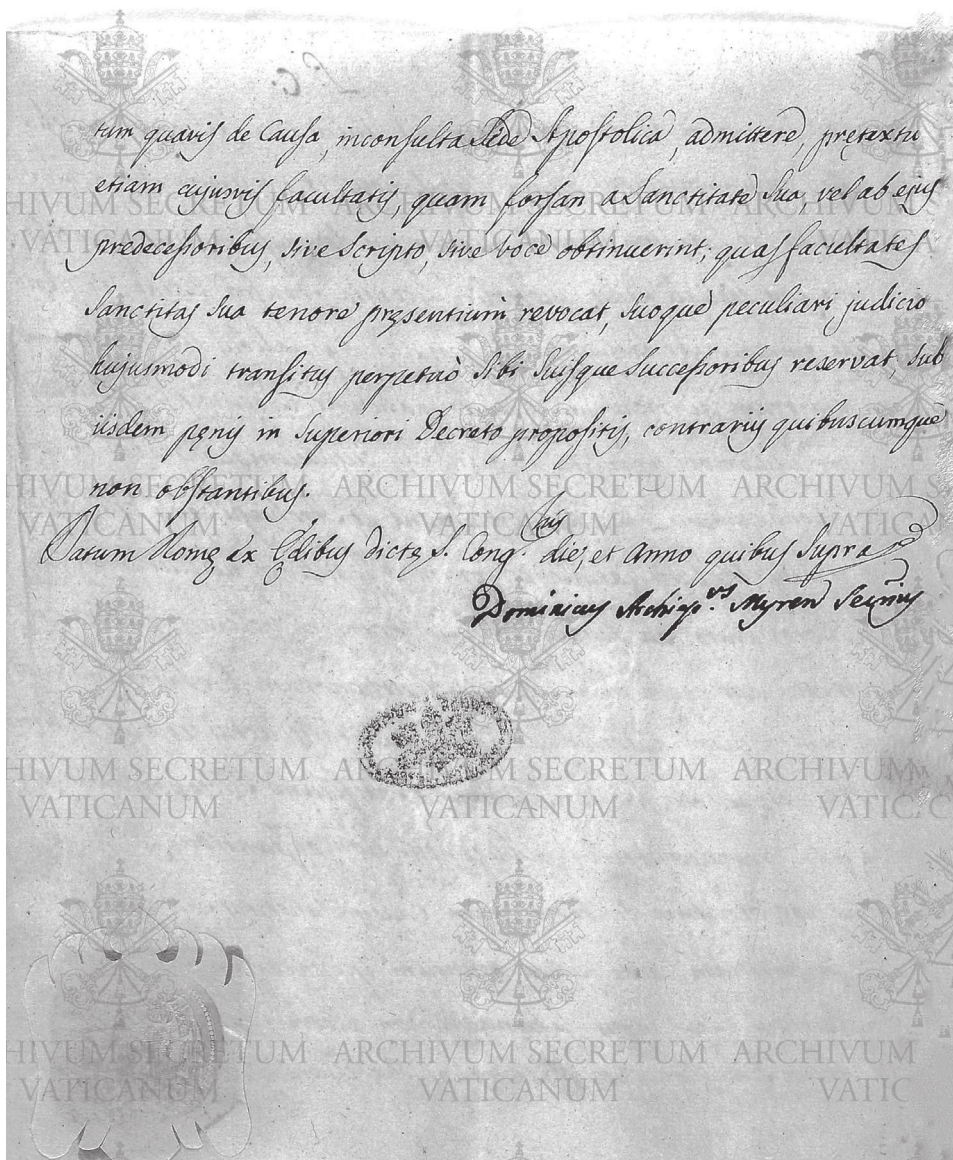 tum quavis de Causa, inconsulta Sede Apostolica, admittere, prętextu
etiam cujusvis facultatis, quam forsan a Sanctitate Sua, vel ab ejus
predecessoribus, sive Scripto, sive voce obtinuerint; quas facultates
Sanctitas Sua tenore pręsentium revocat, suoque peculiari judicio
hujusmodi transitus perpetuò sibi Suisque Successoribus reservat, sub
iisdem pęnis in Superiori Decreto propositis, contrariis quibuscumque
non obstantibus.
Datum Romę ex Ędibus dictę S. Cong.nis die, et Anno quibus Supra
Dominicus Archiep.us Myren Secrius
ARCHIVUM SECRETUM VATICANUM